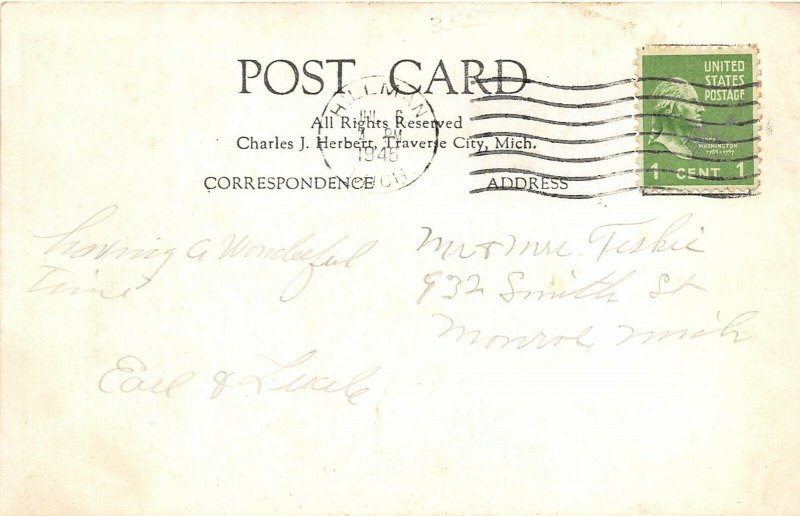 3.00
POST CARD
UNITED
STATES
POSTAGE
HILLMAN
6
PM
1946
MICH.
All Rights Reserved
Charles J. Herbert, Traverse City, Mich.
WASHINGTON
1789-1797
1 CENT 1
CORRESPONDENCE
ADDRESS
having a Wonderful
Time
Earl &
Mr & Mrs
932 Smith St
Monroe Mich